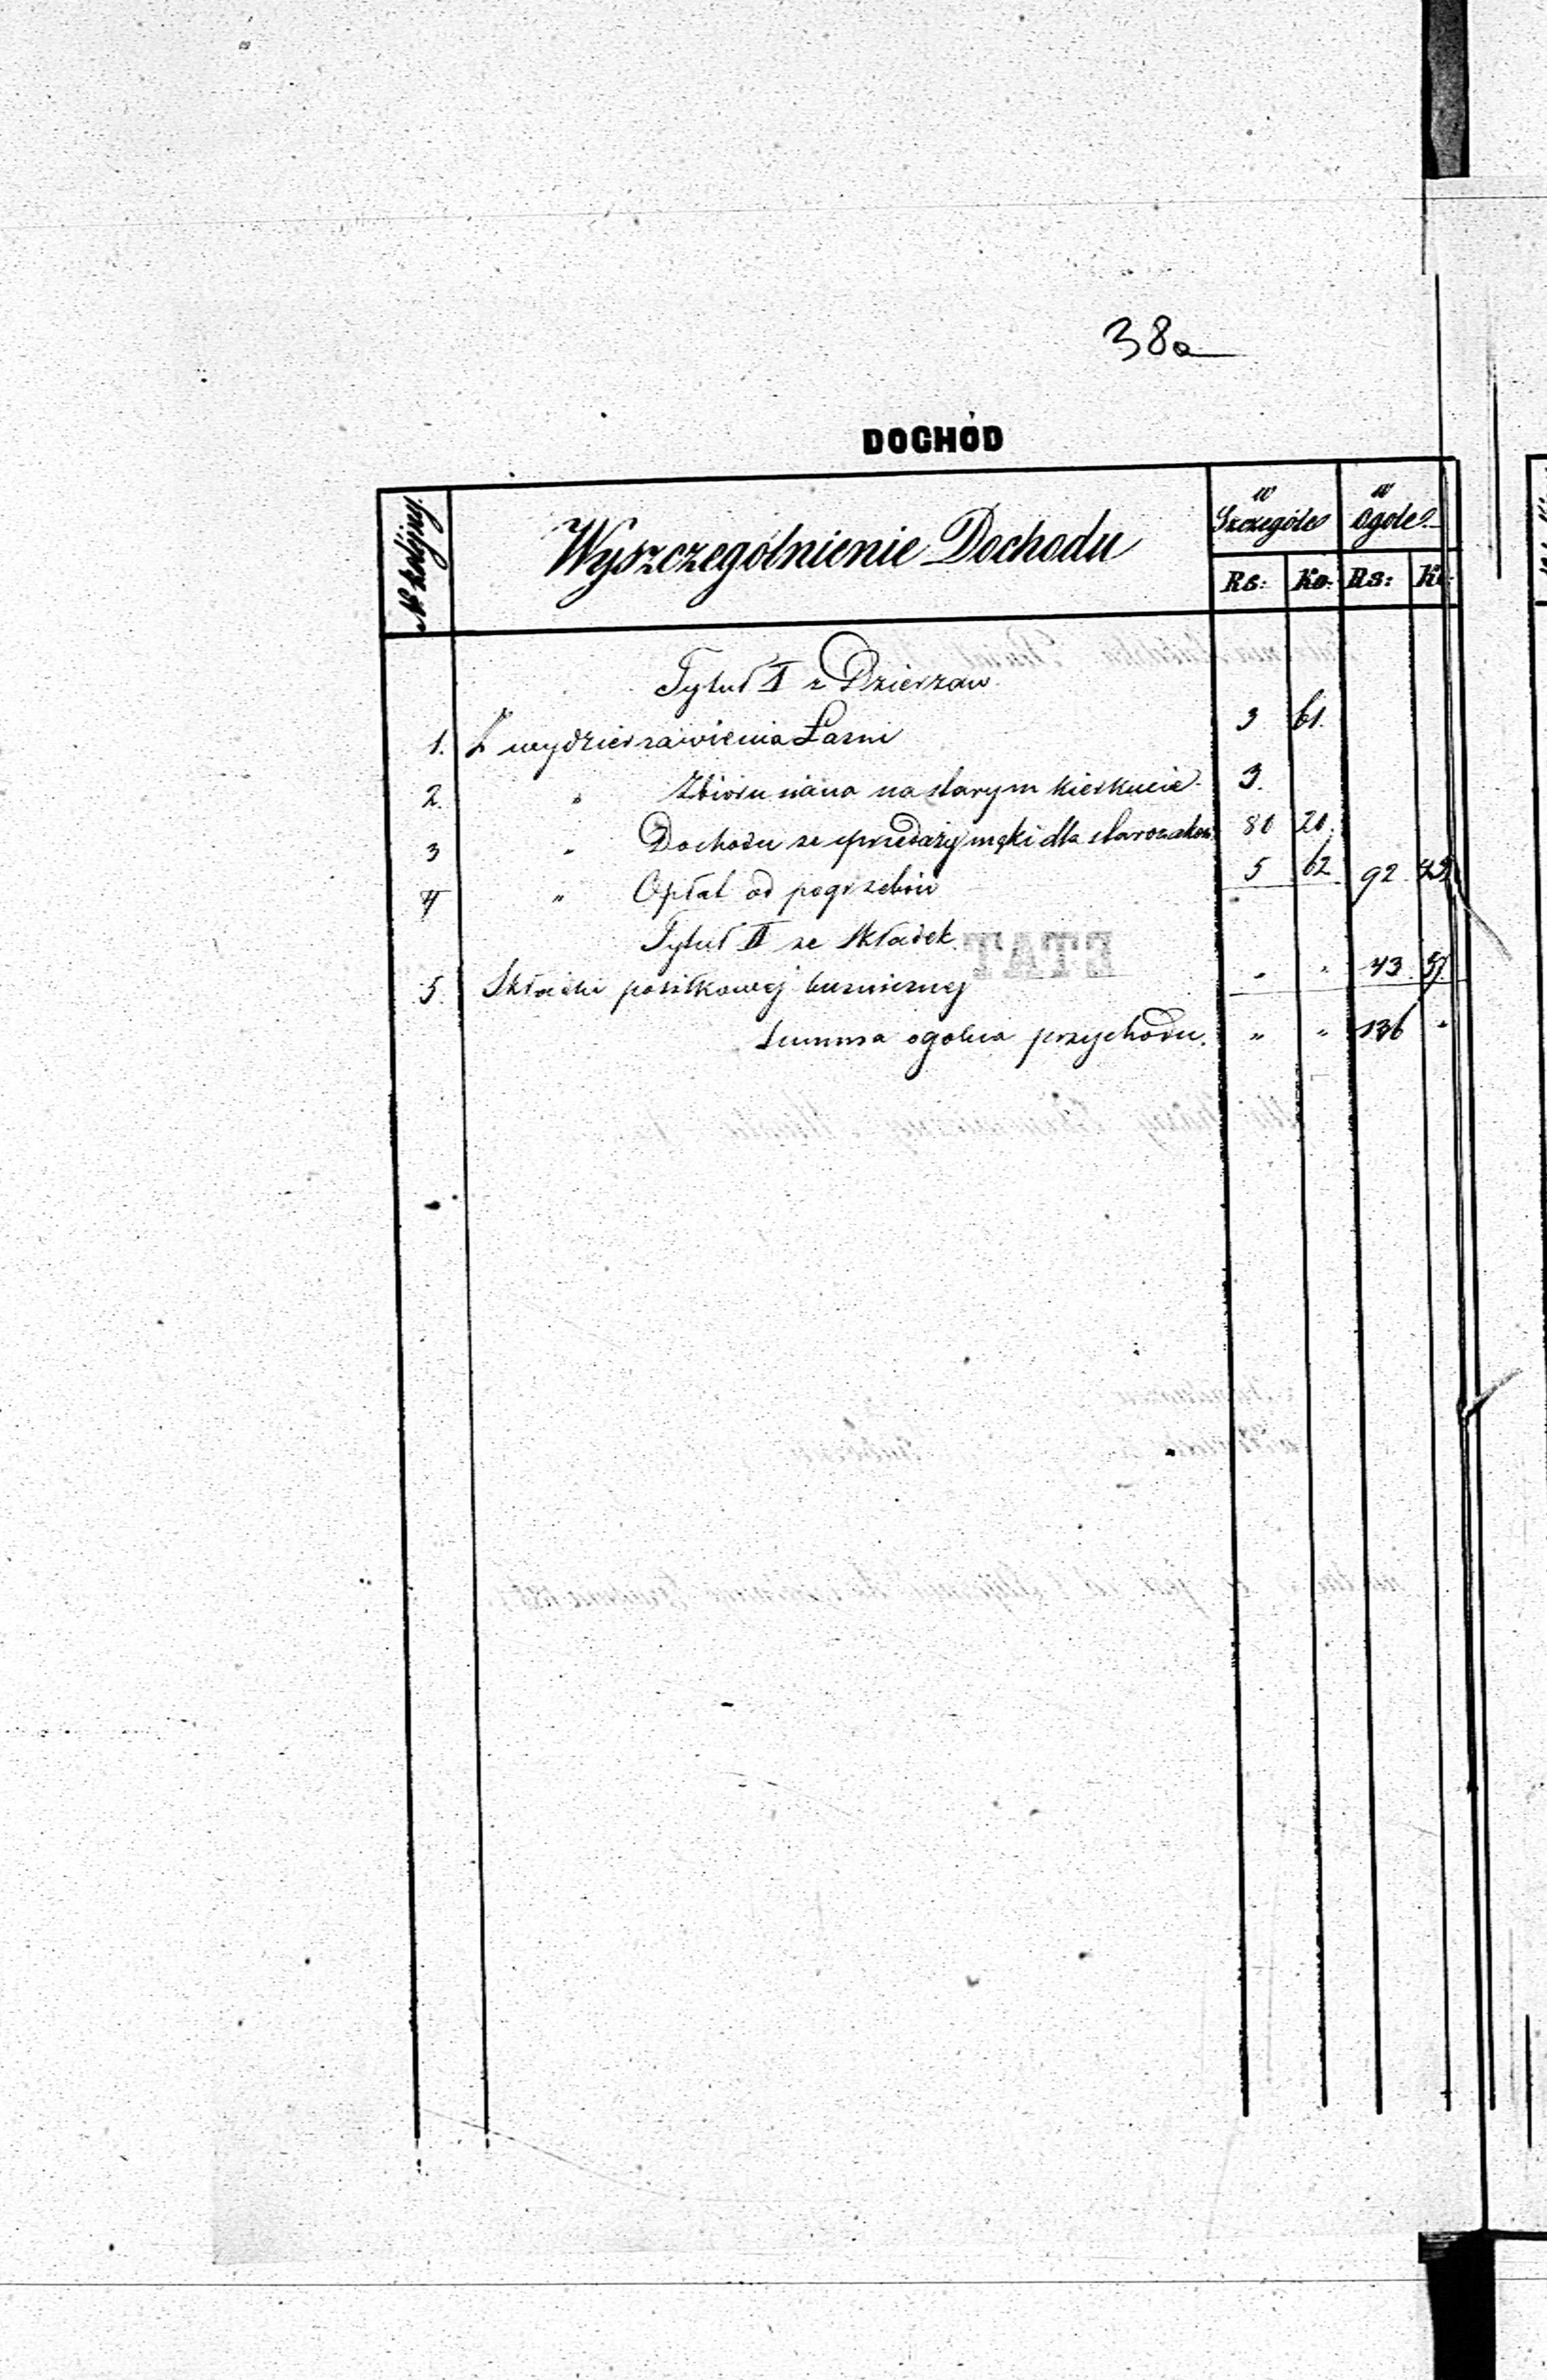 38a
DOCHÓD
№ kolejny. Wyszczególnienie Dochodu w Szczególe w Ogóle
Rs: Ko: Rs: Ko:
Tytuł I z Dzierzaw
1. Z wydzierzawienia Łazni 3 61.
2. " Zbioru siana na starym kierkucie 3.
3 " Dochodu ze sprzedaży mąki dla starozakon. 80 20.
4 " Opłat od pogrzebów 5 62 92 43
Tytuł II ze Składek.
5. Składki posiłkowej bużnicznej " " 43 57.
Summa ogolna przychodu. " " 136 "
ETAT